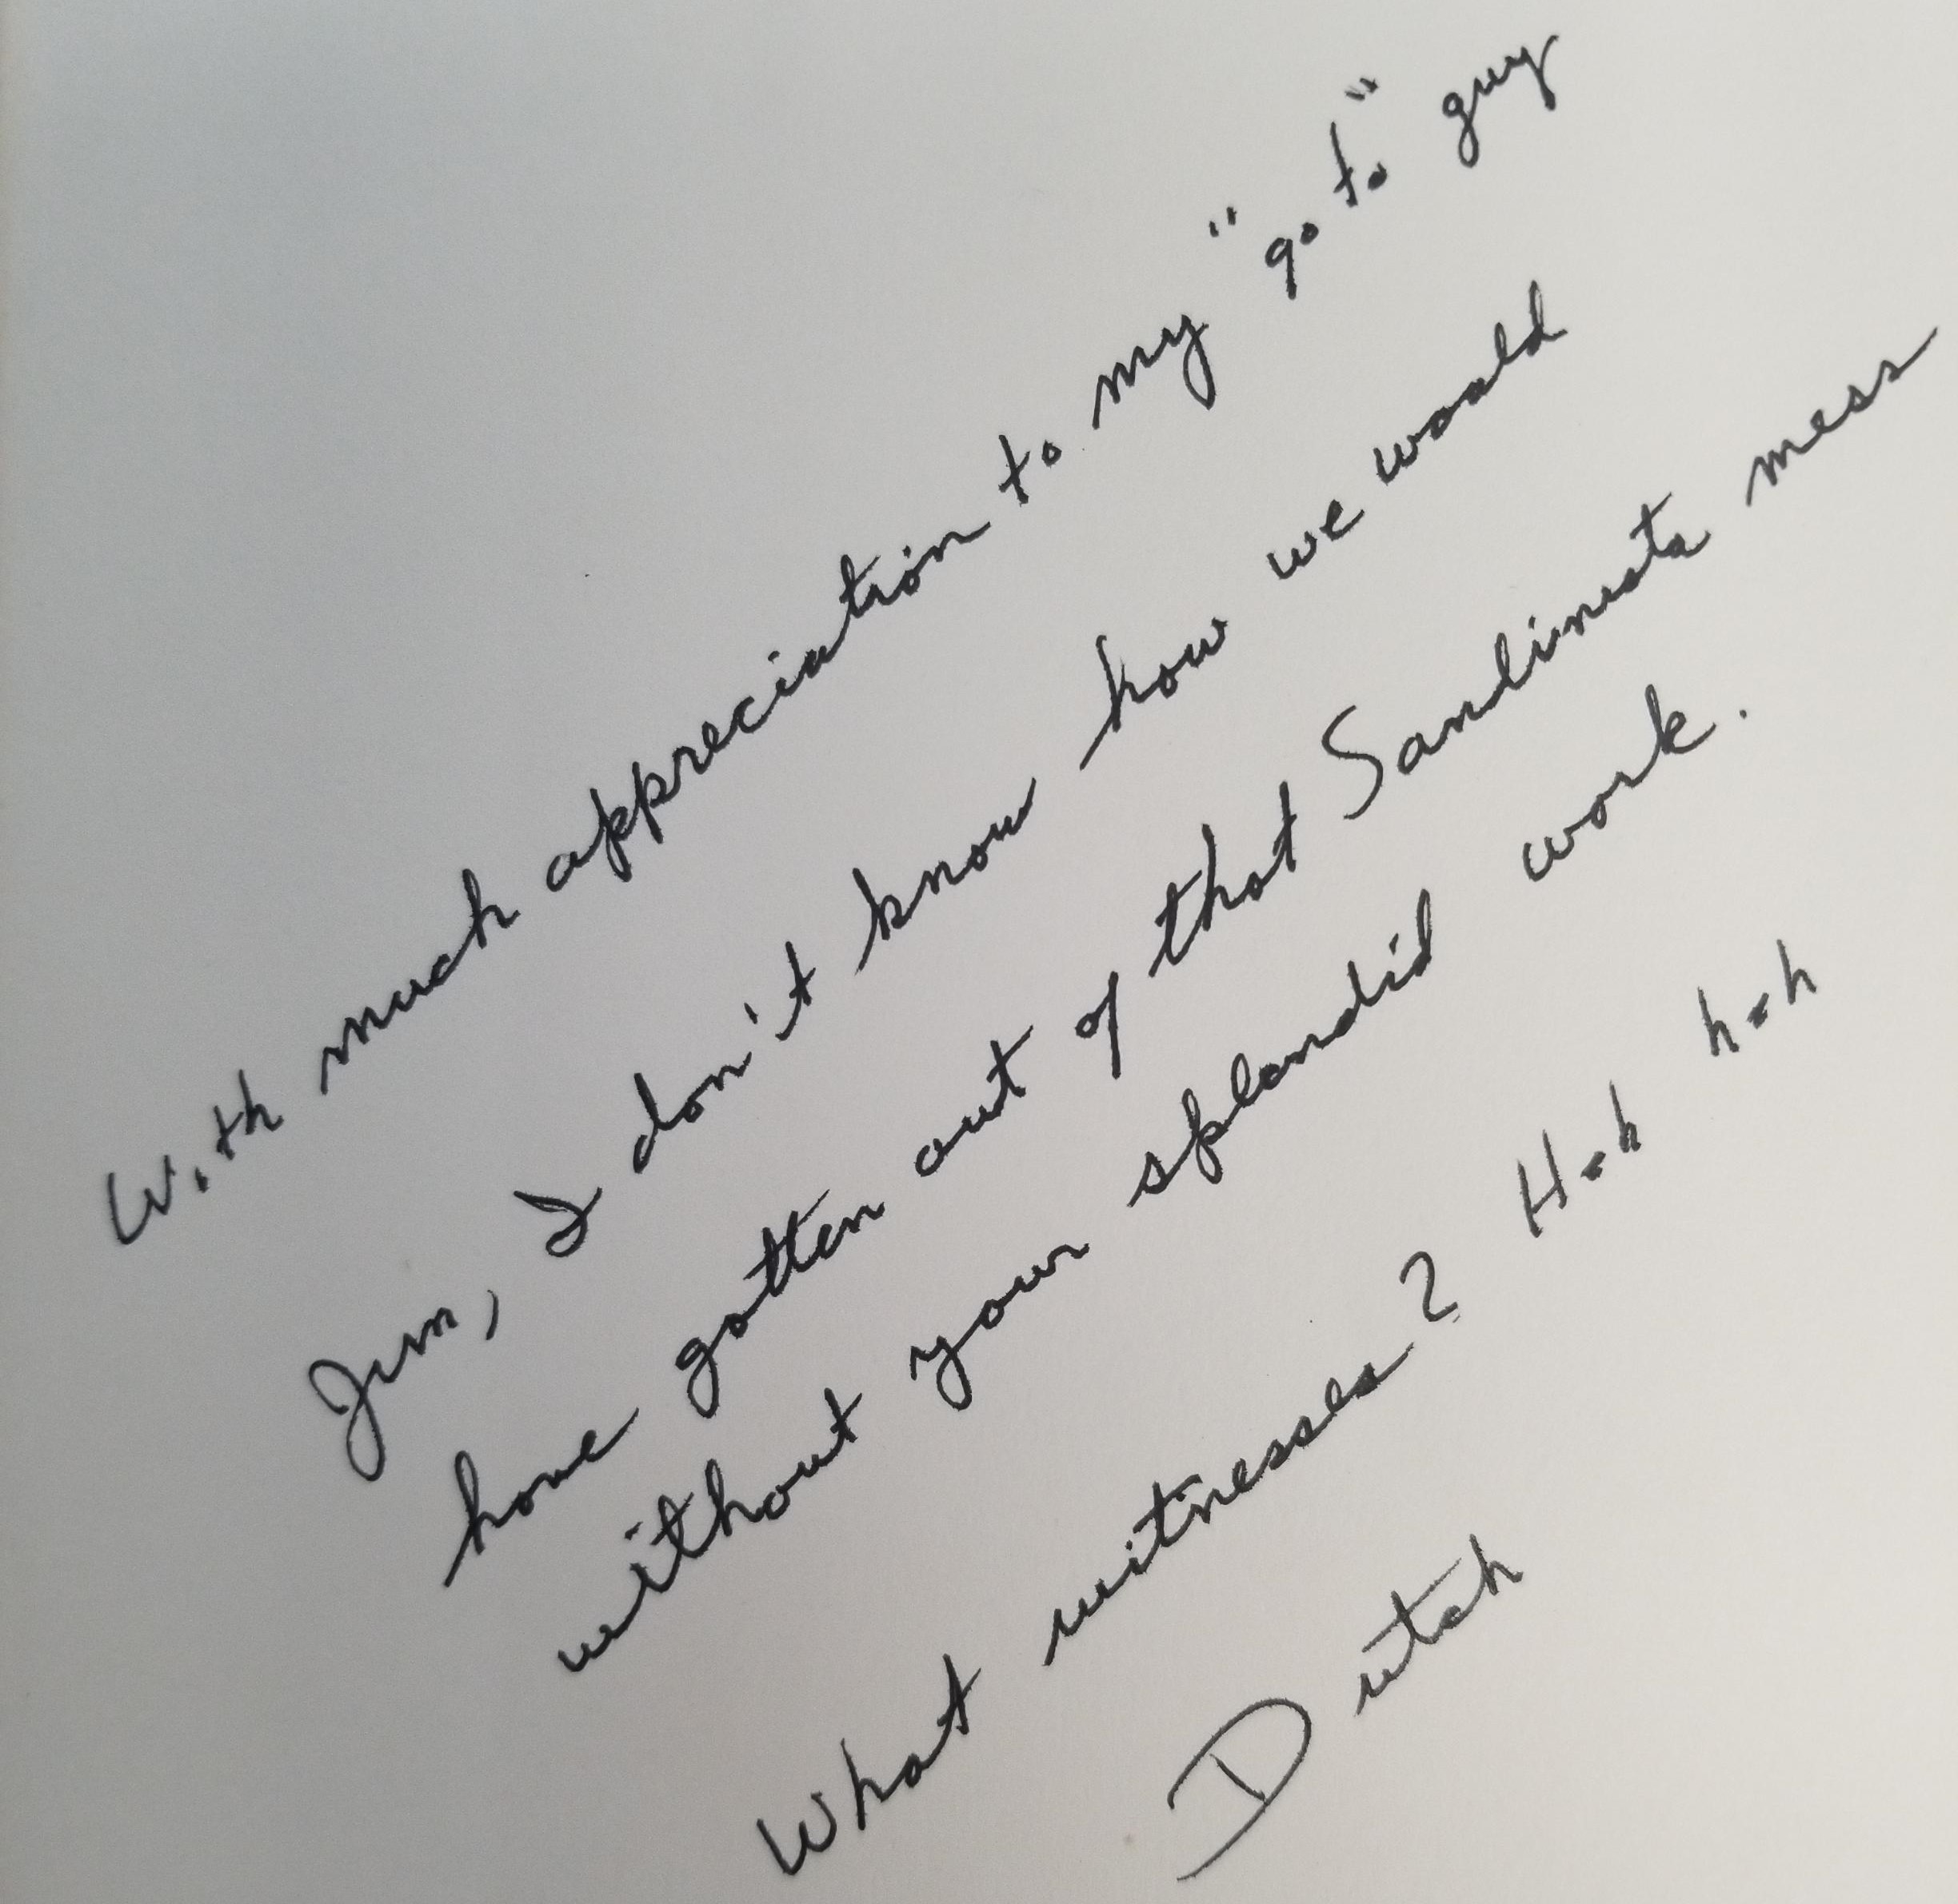 With much appreciation to my "go to" guy
Jim, I don't know how we would
have gotten out of that Sanlinista mess
without your splendid work.
What witnesses? Heh heh
Dutch